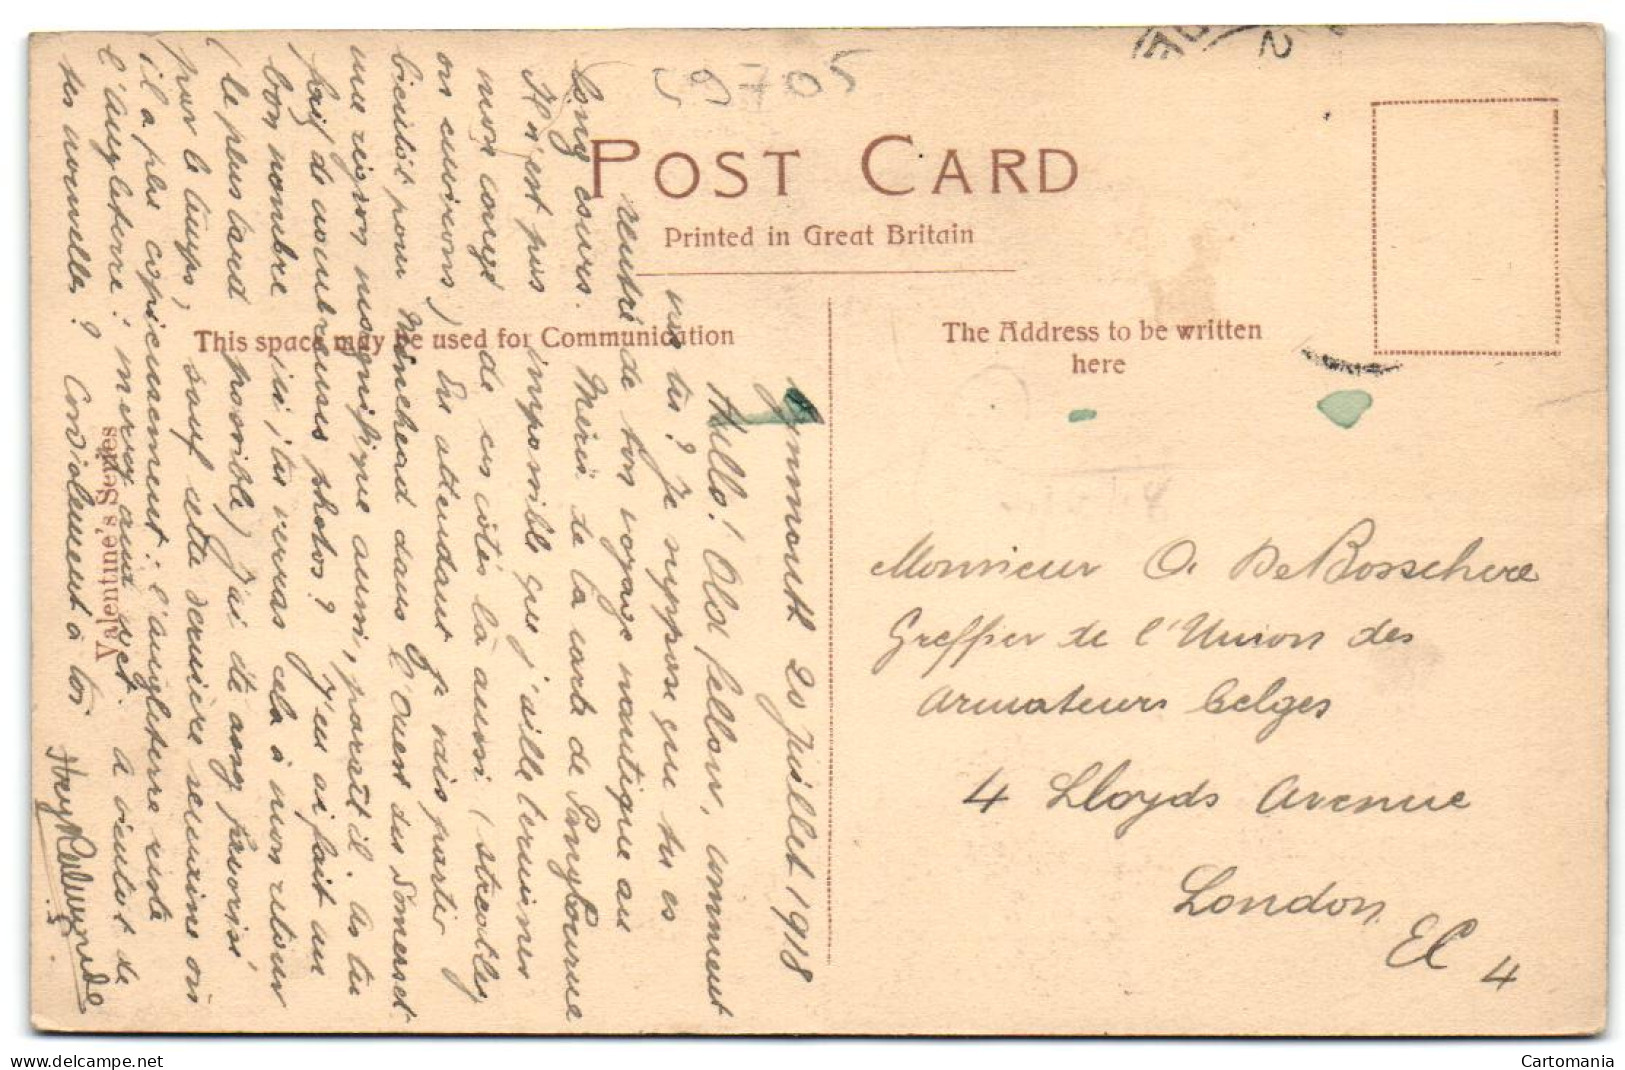 59705
POST CARD
Printed in Great Britain
This space may be used for Communication
The Address to be written
here
Valentine's Series
Lynmouth 20 Juillet 1918
Hullo! Old fellow, comment
vas tu? Je suppose que tu es
rentré de ton voyage nautique au
long cours. Merci de la carte de Pangbourne
Il n'est pas impossible que j'aille terminer
mon congé de ces côtés là aussi (Streatley
ou environs) En attendant je vais partir
bientôt pour Minehead dans l'Ouest du Somerset
une région magnifique aussi, paraît il. As tu
fait de nombreuses photos? J'en ai fait un
bon nombre ici, tu verras cela à mon retour
(le plus tard possible) J'ai été assez favorisé
par le temps, sauf cette dernière semaine où
il a plu copieusement: l'angleterre reste
l'angleterre: merry and wet. A bientôt de
tes nouvelles? Cordialement à toi
Monsieur O. De Bosschere
Greffier de l'Union des
Armateurs belges
4 Lloyds Avenue
London
EC 4
Cartomania
www.delcampe.net